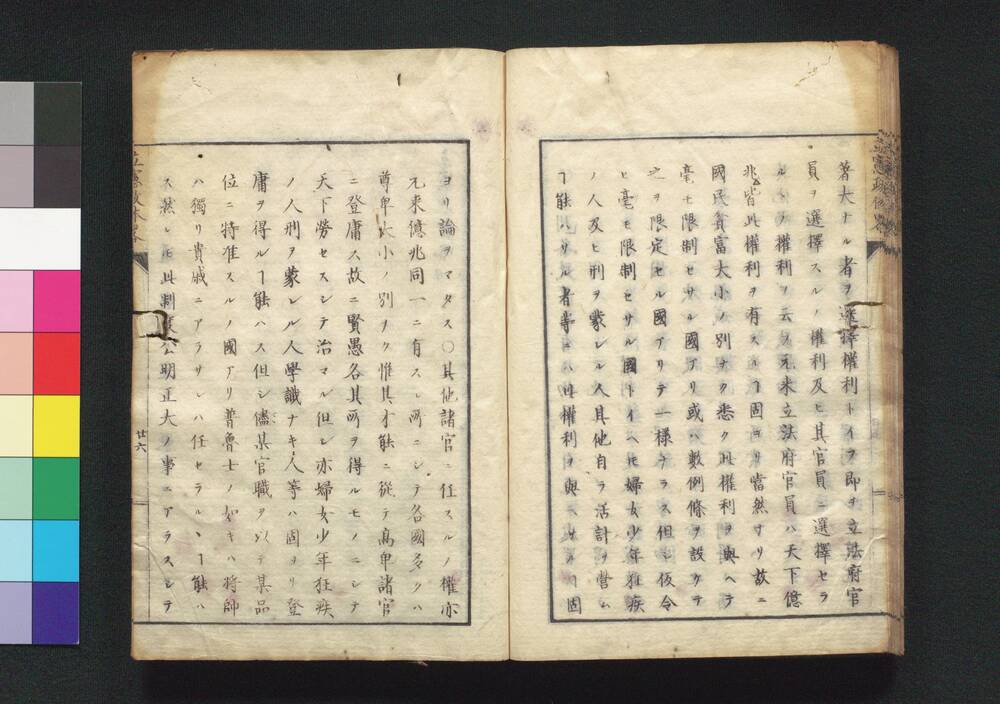 著大ナル者ヲ選擇權利トイヲ即ヲ立法府官
員ヲ選擇スルノ權利及ヒ其官員ニ選擇セラ
ルヽノ權利ヲ云ヲ元来立法府官員ハ天下億
兆皆此權利ヲ有スルヿ固ヨリ當然ナリ故ニ
國民貧富大小ノ別ナク悉ク此權利ヲ與ヘテ
毫モ限制セサル國アリ或ハ數例條ヲ設ケテ
之ヲ限定セル國アリテ一様ナラス但シ仮令
ヒ毫モ限制セサル國トイヘヒ婦女少年狂疾
ノ人及ヒ刑ヲ蒙レル人其他自ラ活計ヲ營ム
ヿ能ハサル者等ハ此權利ヲ與ヘサルヿ固
ヨリ論ヲマタス〇其他諸官ニ任スルノ權亦
元来億兆同一ニ有スル所ニシテ各國多クハ
尊卑大小ノ別ヲク惟其才能ニ從テ高卑諸官
ニ登庸ス故ニ賢愚各其所ヲ得ルモノニシテ
天下勞セスシテ治マル但シ亦婦女少年狂疾
ノ人刑ヲ蒙レル人學識ナキ人等ハ固ヨリ登
庸ヲ得ルヿ能ハス但シ儘某官職ヲ以テ某品
位ニ特准スルノ國アリ普魯士ノ如キハ将帥
ハ獨リ貴戚ニアラサレハ任セラルヽヿ能ハ
ス然レヒ此制度公明正大ノ事ニアラスシテ
廿六